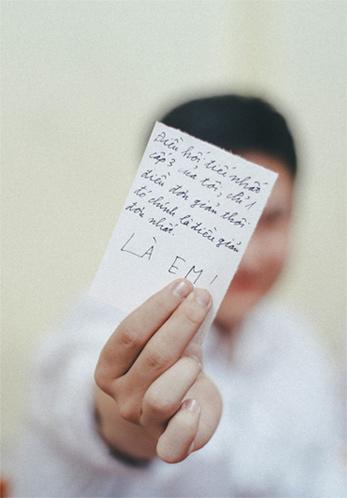 Điều hối tiếc nhất
cấp 3 của tôi, chỉ 1
điều đơn giản thôi
đó chính là điều giản
đơn nhất.
LÀ EM!